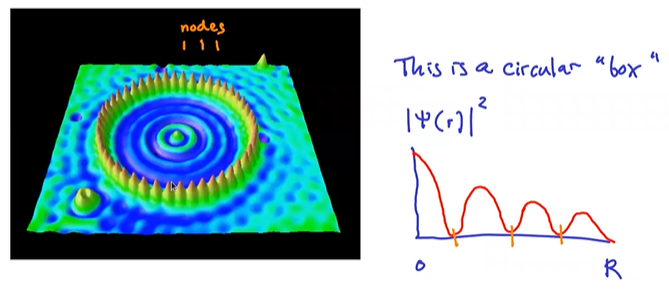 nodes
This is a circular "box"
|Ψ(r)|²
0
R